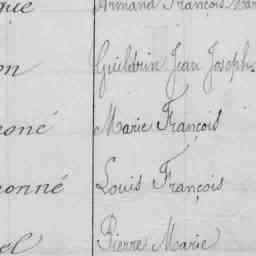 que Armand François Mar
on Guildrin Jean Joseph
oné Marie François
onné Louis François
el Pierre Marie